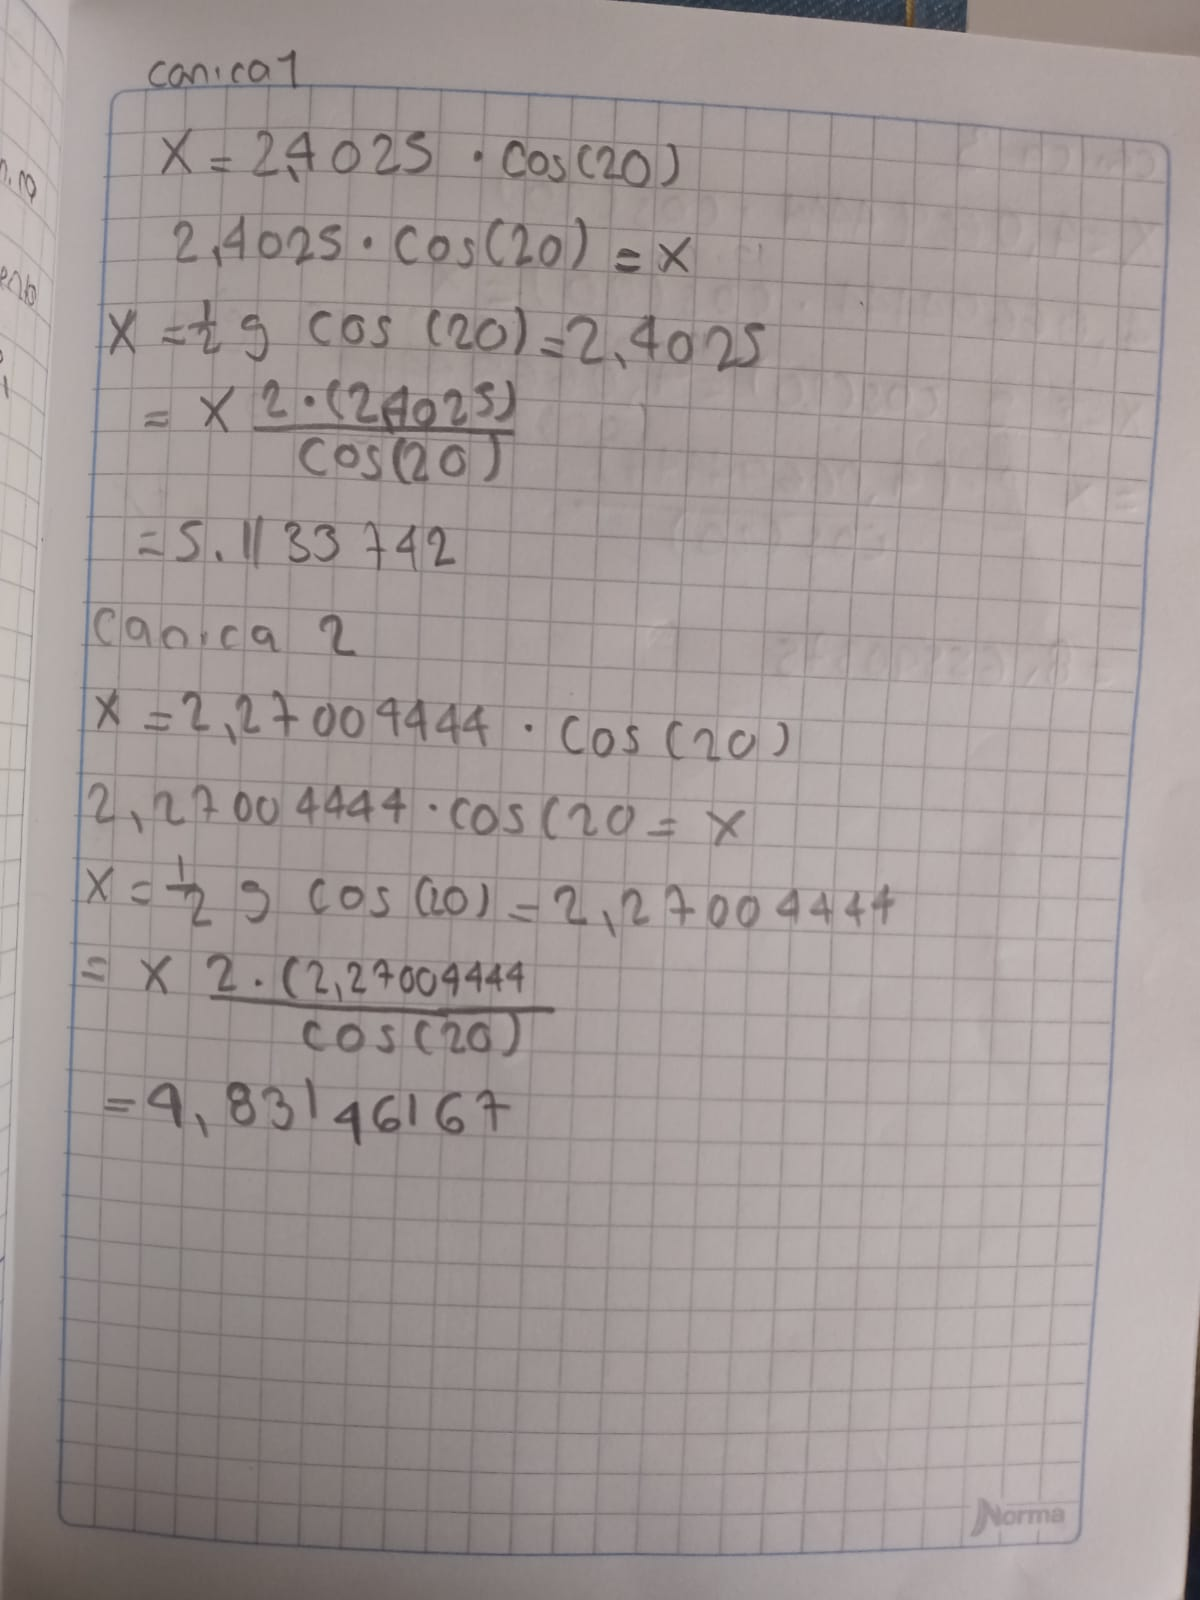 canica 1
X = 2,4025 · cos(20)
2,4025 · cos(20) = x
X = 1/2 g cos (20) = 2,4025
= x 2·(2,4025)
cos(20)
= 5.1133742
canica 2
x = 2,27004444 · cos(20)
2,27004444 · cos(20 = x
x = 1/2 g cos(20) = 2,27004444
= x 2·(2,27004444
cos(20)
= 4,83146167
Norma